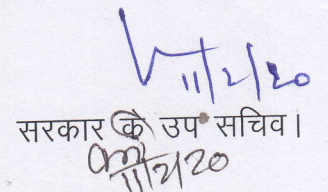 11/2/20
सरकार के उप सचिव।
11/2/20